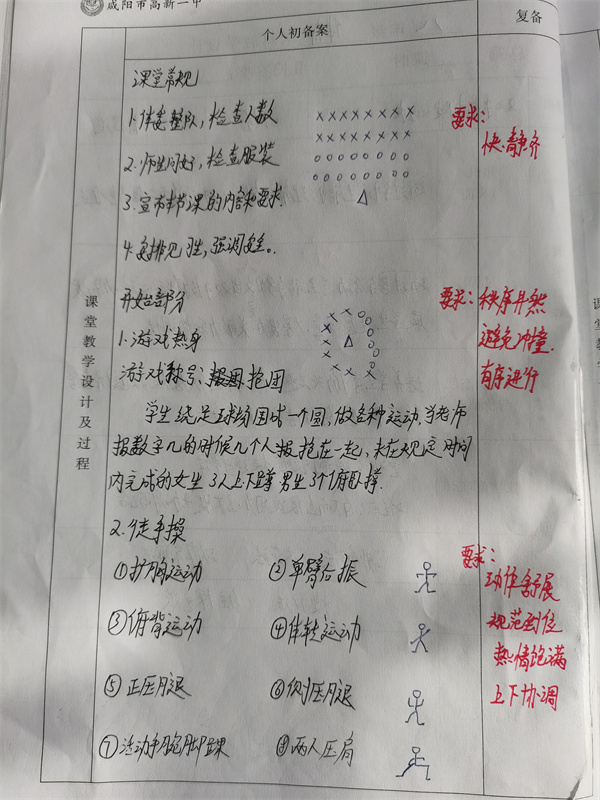 咸阳市高新一中
个人初备案
复备
课堂教学设计及过程
课堂常规
1.体委整队，检查人数
要求：
快.静.齐
2.师生问好，检查服装
3.宣布本节课的内容和要求.
4.安排见习生，强调安全。
开始部分
要求：秩序井然
1.游戏热身
避免冲撞.
游戏称号：抱团
有序进行
学生绕足球场围成一个圆，做各种运动.当老师
报数字几的时候几个人报抱在一起，未在规定时间
内完成的女生3人上下蹲男生3个俯卧撑.
2.徒手操
要求：
①扩胸运动 ②单臂台振
动作舒展
③俯背运动 ④体转运动
规范到位
热情饱满
⑤正压腿 ⑥侧压腿
上下协调
⑦活动手腕脚踝 ⑧两人压肩